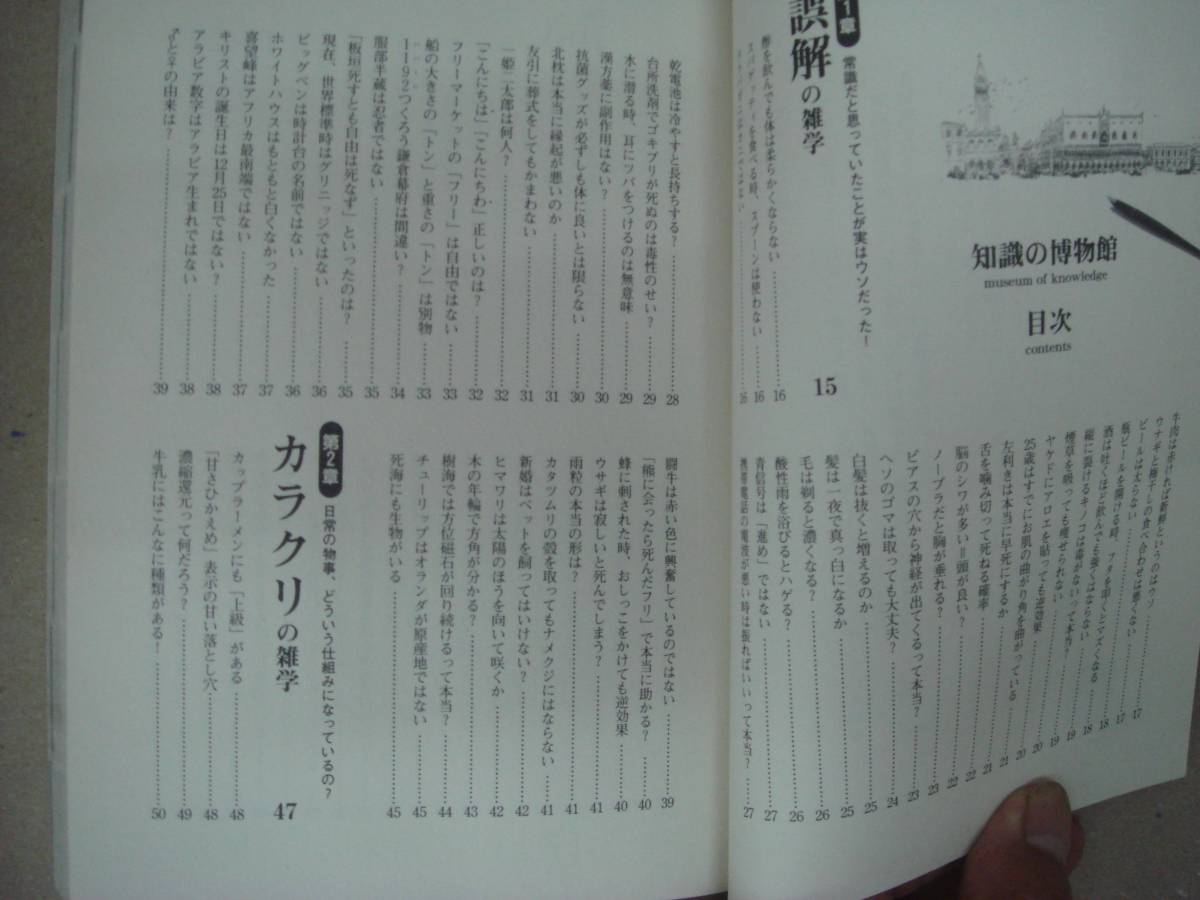 知識の博物館
museum of knowledge
目次
contents
1章
常識だと思っていたことが実はウソだった！
誤解の雑学 15
酢を飲んでも体は柔らかくならない 16
スパゲッティを食べる時、スプーンは使わない 16
牛肉は赤ければ新鮮というのはウソ 17
ウナギと梅干しの食べ合わせは悪くない 17
ビールは太らない
瓶ビールを開ける時、フタを叩くとマズくなる 18
酒は吐くほど飲んでも強くはならない 18
縦に裂けるキノコは毒がないって本当？ 19
煙草を吸っても痩せられない 19
ヤケドにアロエを貼っても逆効果 20
25歳はすでにお肌の曲がり角を曲がっている 20
左利きは本当に早死にするか 21
舌を噛み切って死ねる確率 21
脳のシワが多い＝頭が良い？ 22
ノーブラだと胸が垂れる？ 22
ピアスの穴から神経が出てくるって本当？ 23
ヘソのゴマは取っても大丈夫？ 24
白髪は抜くと増えるのか 25
髪は一夜で真っ白になるか 25
毛は剃ると濃くなる？ 26
酸性雨を浴びるとハゲる？ 26
青信号は「進め」ではない 27
携帯電話の電波が悪い時は振ればいいって本当？ 27
乾電池は冷やすと長持ちする？ 28
台所洗剤でゴキブリが死ぬのは毒性のせい？ 29
水に潜る時、耳にツバをつけるのは無意味 29
漢方薬に副作用はない？ 30
抗菌グッズが必ずしも体に良いとは限らない 30
北枕は本当に縁起が悪いのか 31
友引に葬式をしてもかまわない 31
一姫二太郎は何人？ 32
「こんにちは」「こんにちわ」正しいのは？ 32
フリーマーケットの「フリー」は自由ではない 33
船の大きさの「トン」と重さの「トン」は別物 33
1192つくろう鎌倉幕府は間違い？ 34
服部半蔵は忍者ではない 35
「板垣死すとも自由は死なず」といったのは？ 35
現在、世界標準時はグリニッジではない 36
ビッグベンは時計台の名前ではない 36
ホワイトハウスはもともと白くなかった 37
喜望峰はアフリカ最南端ではない 37
キリストの誕生日は12月25日ではない？ 38
アラビア数字はアラビア生まれではない 38
♂と♀の由来は？ 39
闘牛は赤い色に興奮しているのではない 39
「熊に会ったら死んだフリ」で本当に助かる？ 40
蜂に刺された時、おしっこをかけても逆効果 40
ウサギは寂しいと死んでしまう？ 41
雨粒の本当の形は？ 41
カタツムリの殻を取ってもナメクジにはならない 41
新婚はペットを飼ってはいけない？ 42
ヒマワリは太陽のほうを向いて咲くか 42
木の年輪で方角が分かる？ 43
樹海では方位磁石が回り続けるって本当？ 44
チューリップはオランダが原産地ではない 45
死海にも生物がいる 45
第2章
日常の物事、どういう仕組みになっているの？
カラクリの雑学 47
カップラーメンにも「上級」がある 48
「甘さひかえめ」表示の甘い落とし穴 48
濃縮還元って何だろう？ 49
牛乳にはこんなに種類がある！ 50